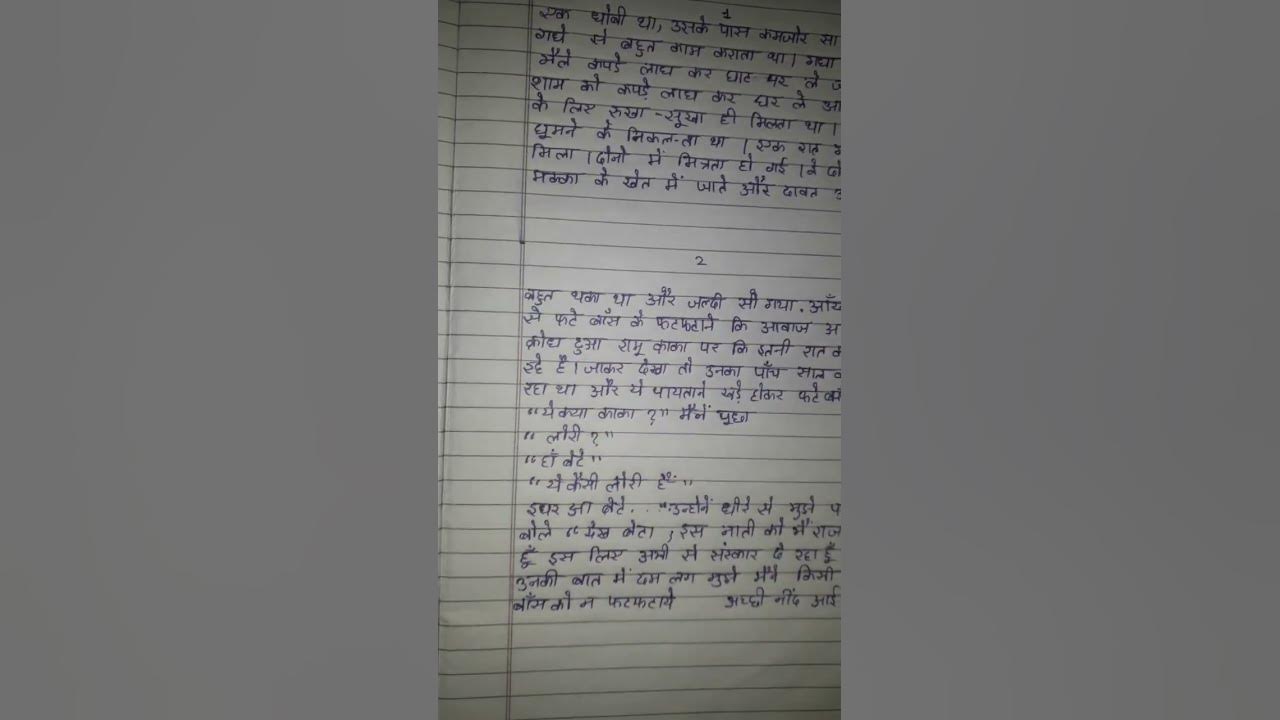 1
एक धोबी था, उसके पास कमजोर सा
गधे से बहुत काम कराता था। गधा
मैले कपडे लाघ कर घाट पर ले
शाम को कपड़े लाघ कर घर ले आ
के लिए रुखा-सूखा ही मिलता था।
घूमने के निकल-ता था। एक रात
मिला। दोनो में मित्रता हो गई। वे दो
मक्का के खेत में जाते और दावत
2
बहुत थका था और जल्दी सो गया.
से फटे बाँस के फटफटाने कि आवाज अ
क्रोध हुआ रामू काका पर कि इतनी रात
रहे है। जाकर देखा तो उनका पाँच साल
रहा था और ये पायताने खड़े होकर फटे
"ये क्या काका ?" मैनें पूछा
"लोरी ?"
"हाँ बेटे"
"ये कैसी लोरी है"
इधर आ बेटे. . "उन्होनें धीरे से मुझे प
बोले "देख बेटा, इस नाती को मैं राज
हूँ इस लिए अभी से संस्कार दे रहा हूँ
उनकी बात में दम लग मुझे मैने किसी
बाँस को न फटफटाये अच्छी नींद आई